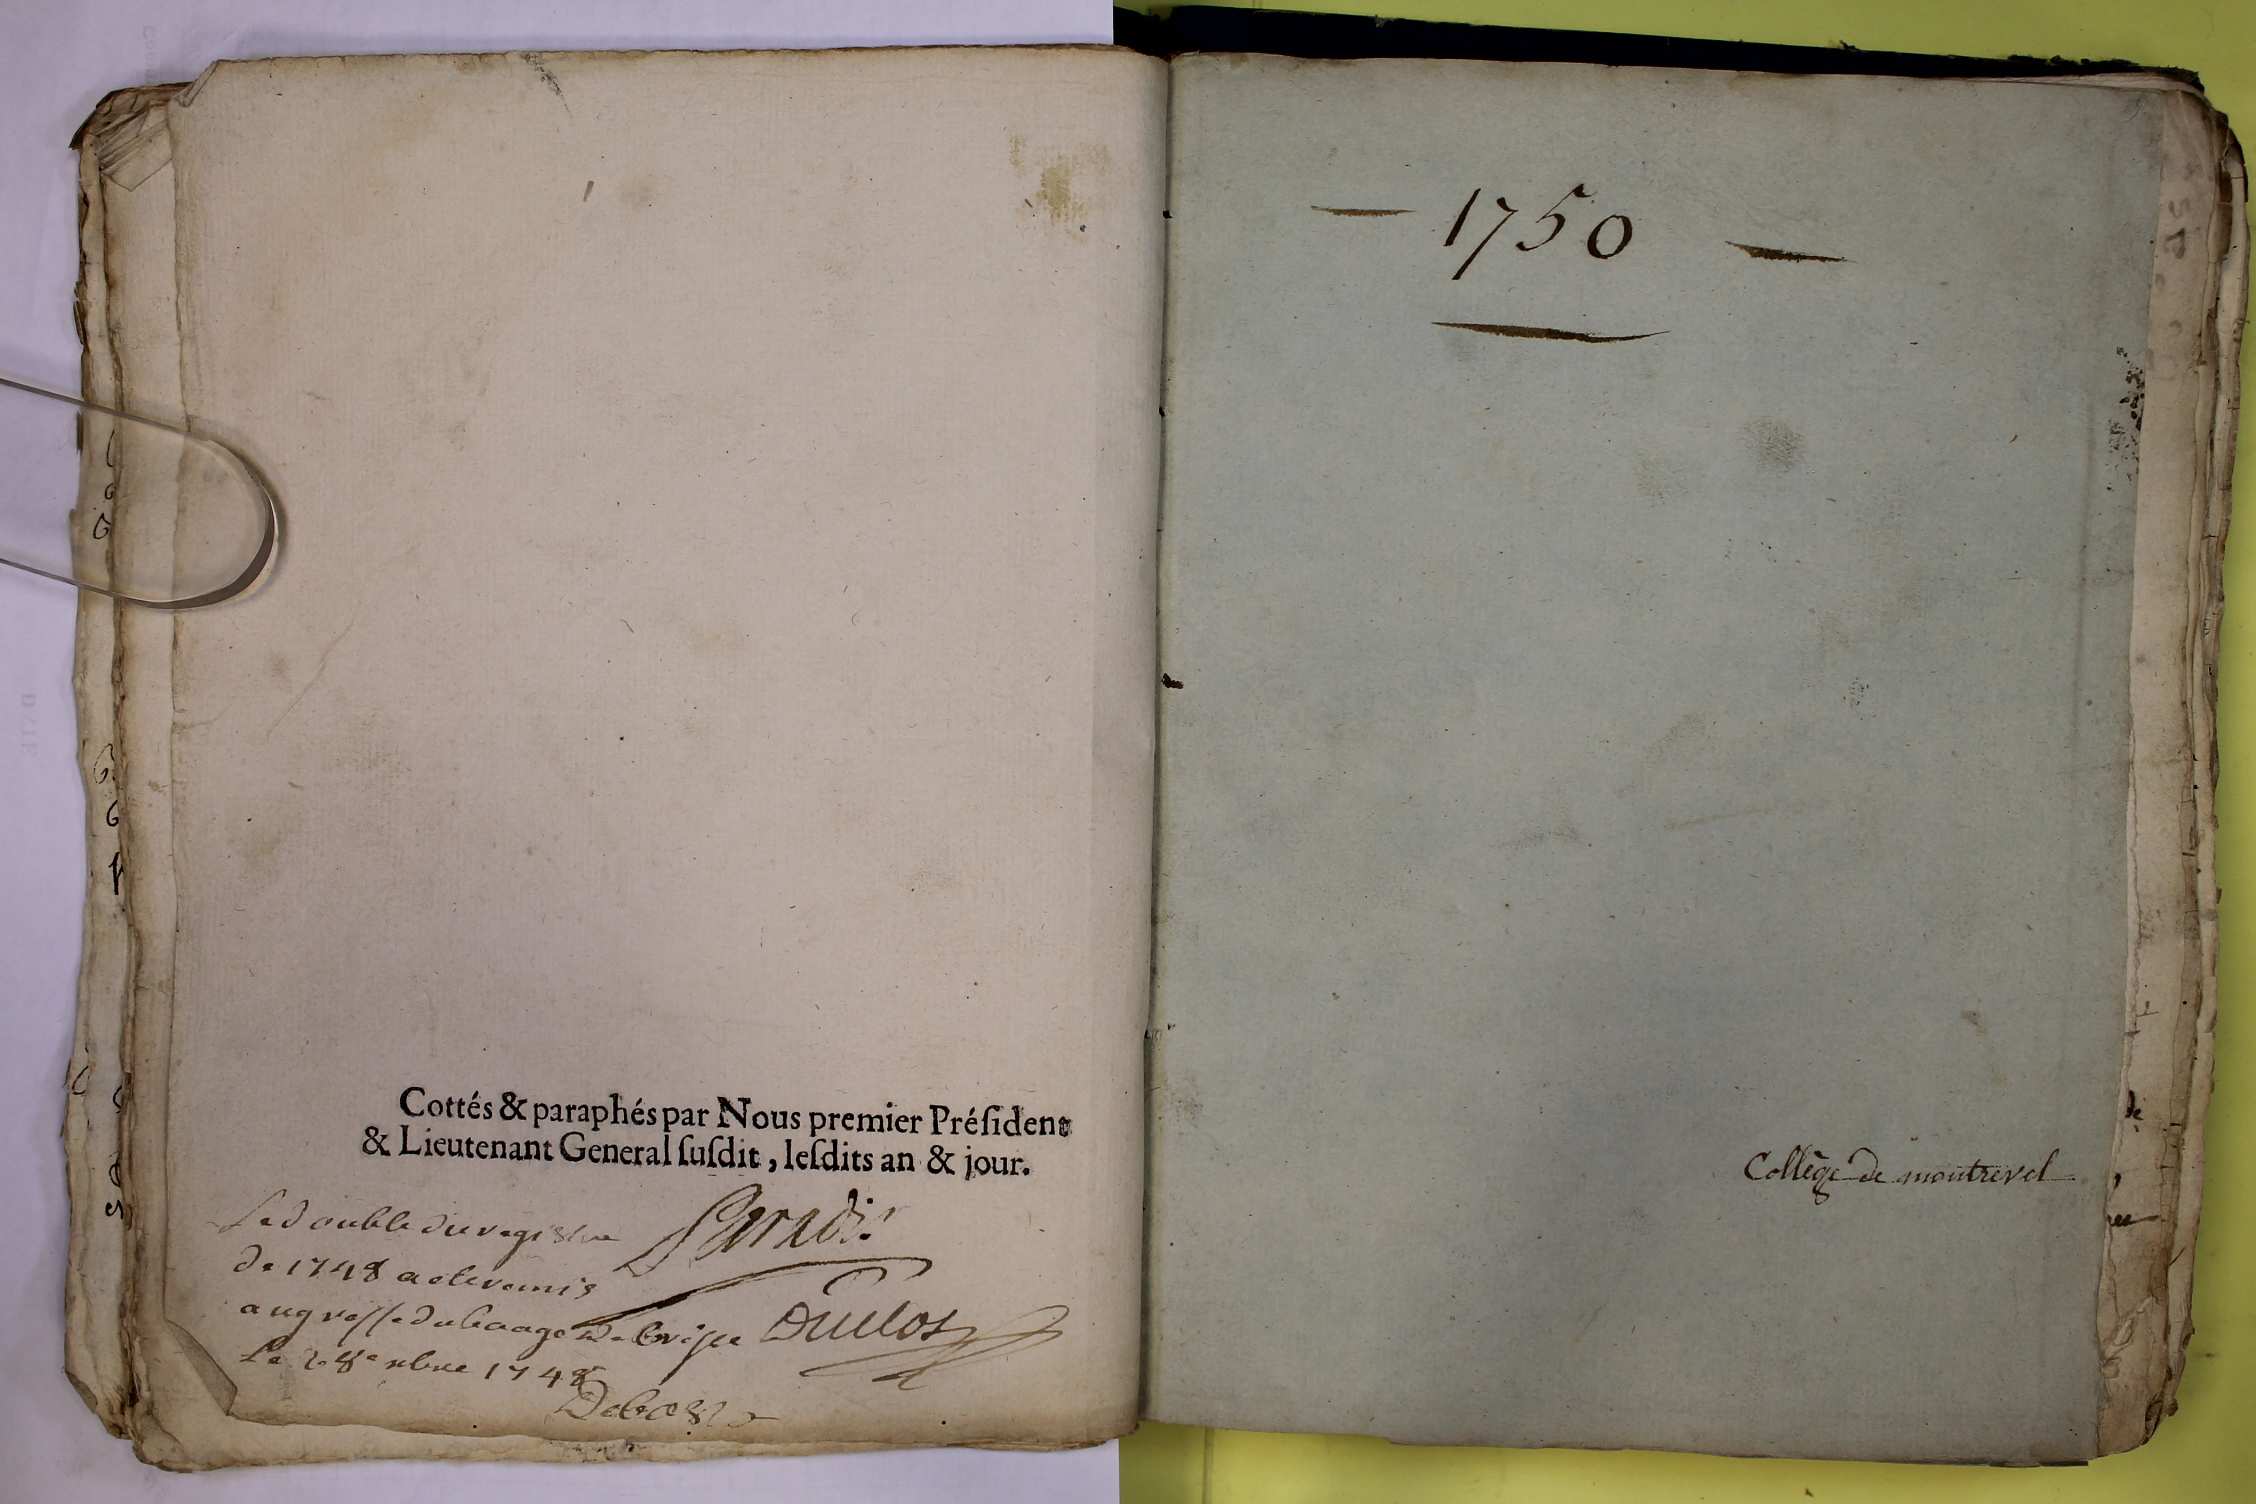 Cottés & paraphés par Nous premier Préſident
& Lieutenant General ſuſdit, leſdits an & jour.
Le double du registre
de 1748 a ete remis
au greffe du
Le 1748
Paradis
Duclos
— 1750 —
Collège de montrevel